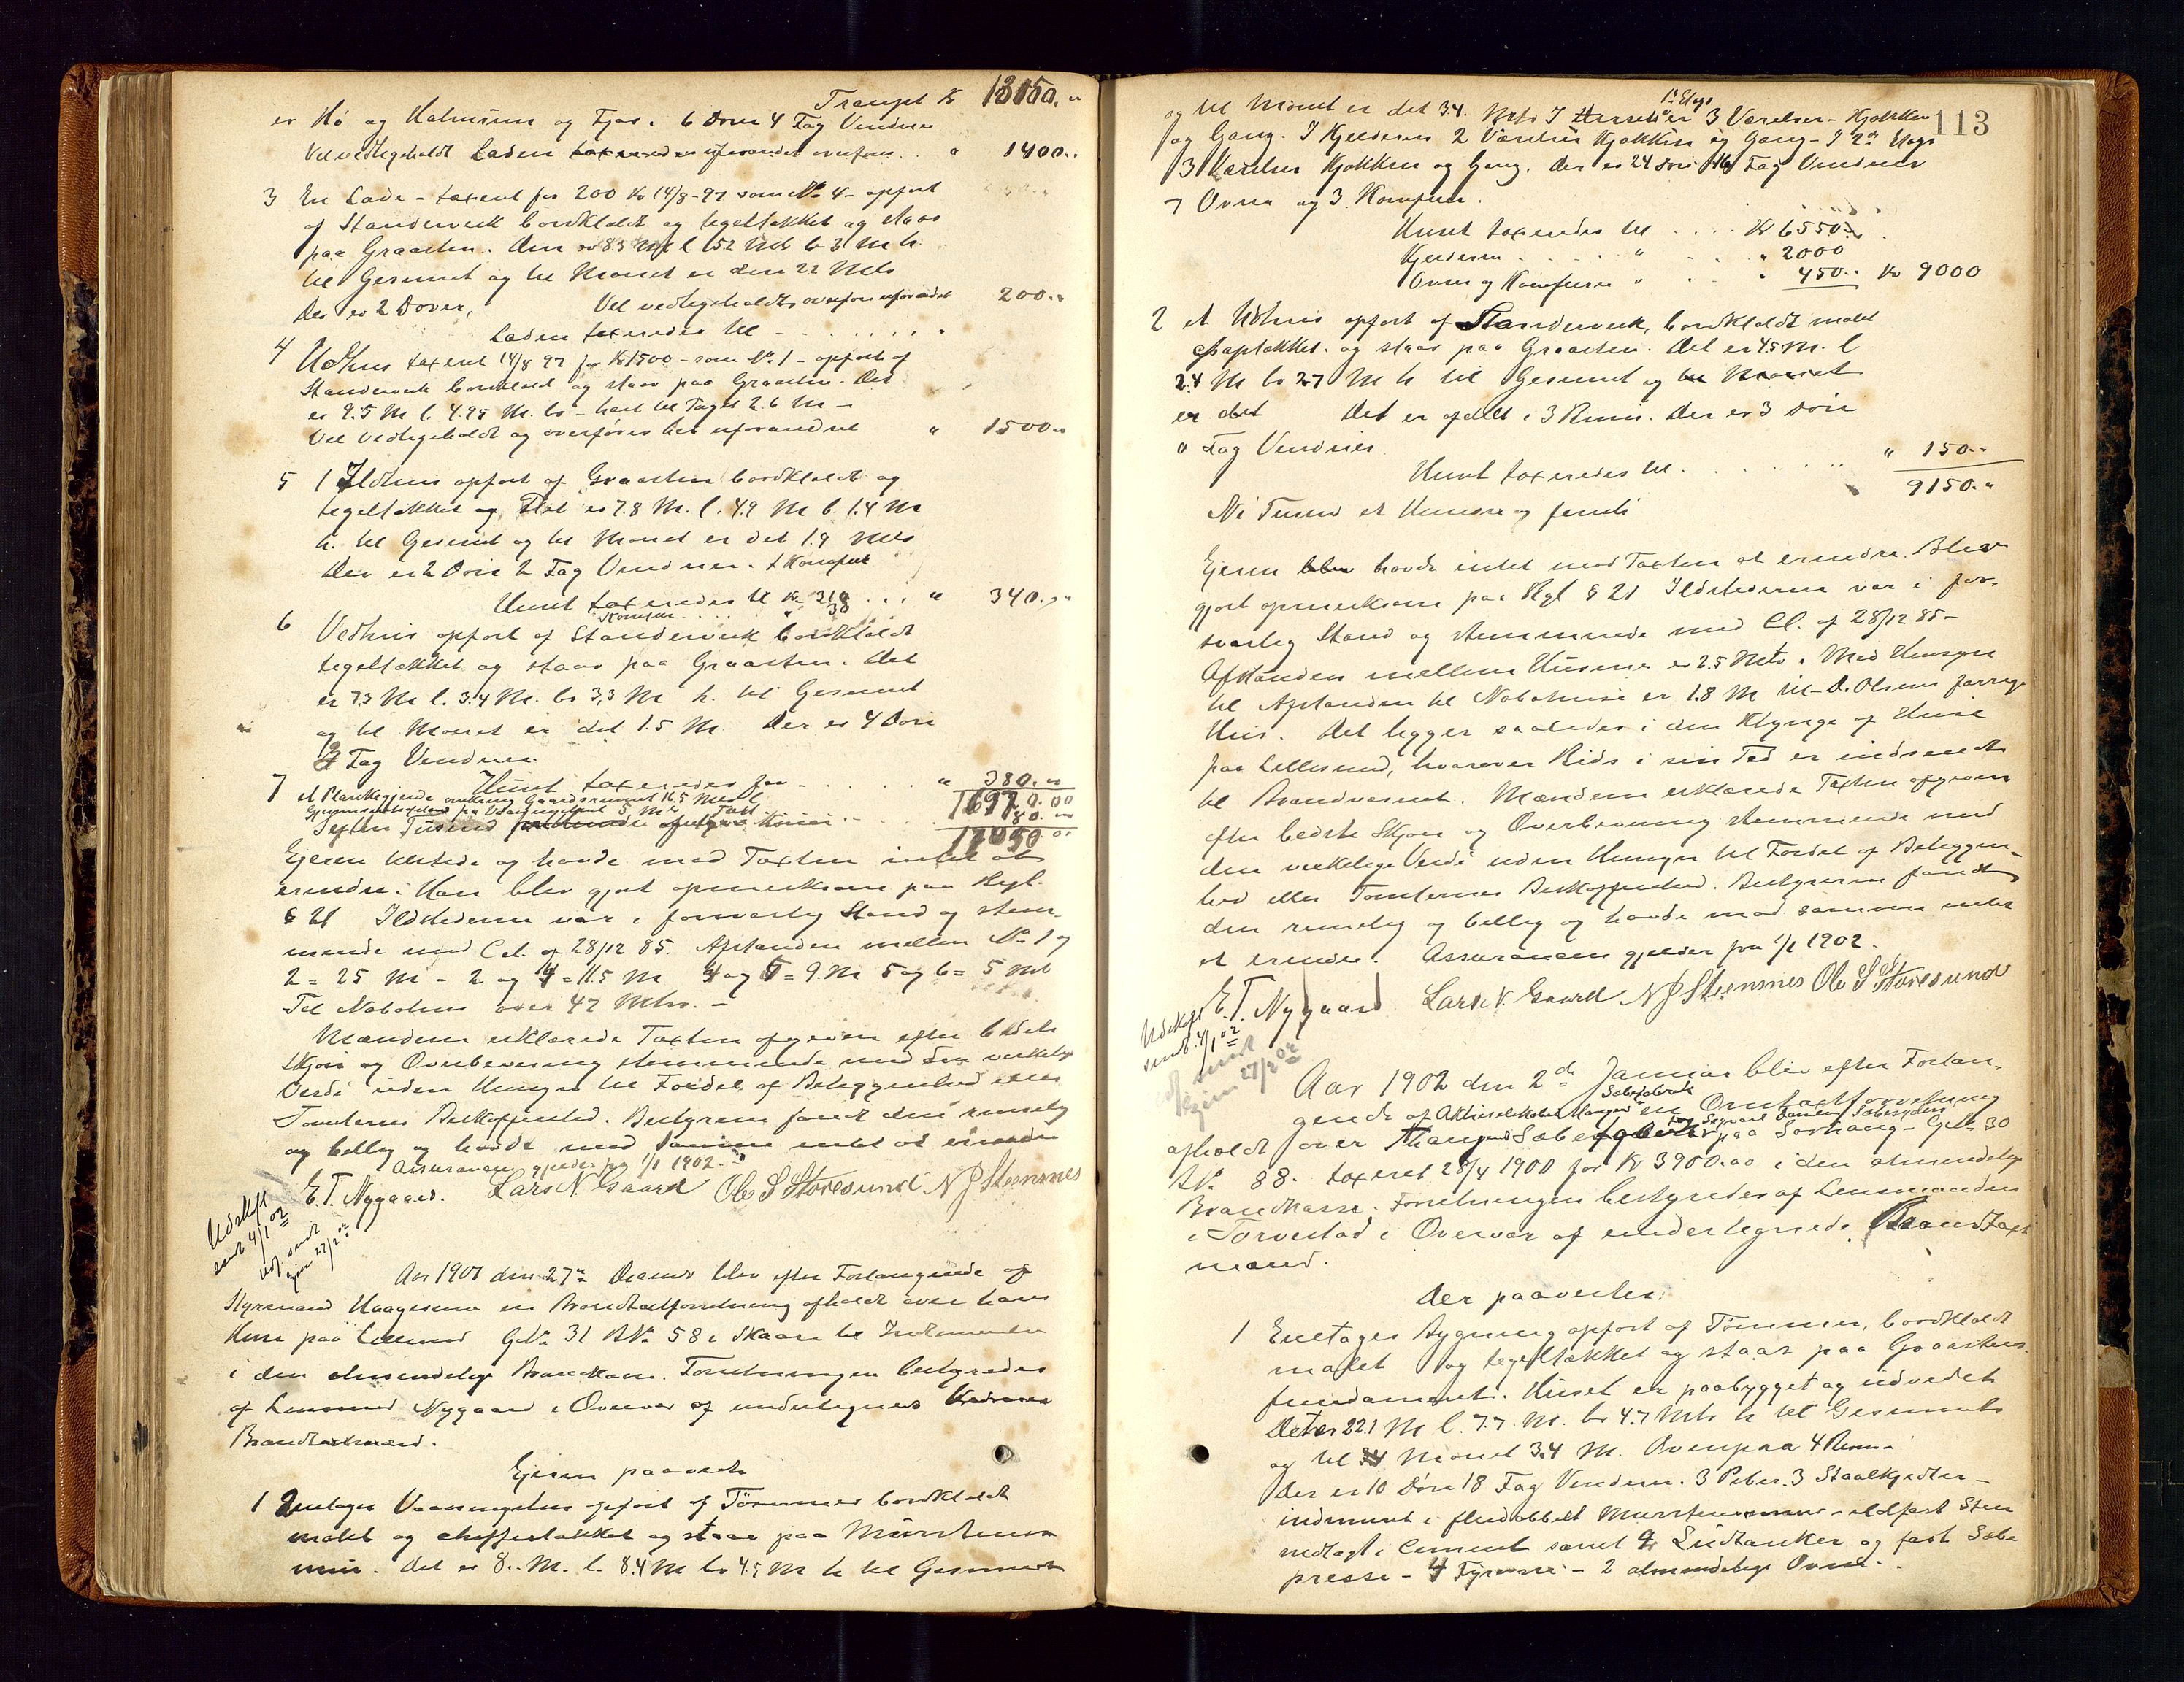 Transpt Kr 13150.
er Hø og Halmrum og Fjøs. 6 Døre 4 Fag Vinduer
Vel vedligeholdt Laden taxeredes uforandret overføres . . " 1400..
3 En Lade - taxeret for 200 Kr 14/8-97 som No 4 - opført
af Standerverk bordklædt og tegeltækket og staar
paa Graasten. Den er 8.3 M l 5.2 Mtr b 3 M h
til Gesimset og til Mønet er den 22 Mtr
Der er 2 Døre, Vel vedligeholdt, overføres uforandret
Laden taxeredes til . . . . . . . " 200..
4 Udhus taxeret 14/8 97 for Kr 1500 - som No 1 - opført af
Standerverk bordklædt og staar paa Graasten. Det
er 9.5 M l. 4.95 M. br - høit til Taget 2.6 M -
Vel vedligeholdt og overføres her uforandret " 1500..
5 1 Ildhus opført af Graasten bordklædt og
tegeltækket og Det er 7.8 M. l. 4.9 M b 1.4 M
h. til Gesimset og til Mønet er det 1.9 Mtr
Der er 2 Døre 2 Fag Vinduer. 1 Komfur
Huset taxeredes til Kr 310 . . . " 340..
Komfur . . . . " 30
6 Vedhus opført af Standerverk bordklædt
tegeltækket og staar paa Graasten. Det
er 7.3 M l. 3.4 M. br 3.3 M h. til Gesimset
og til Mønet er det 1.5 M. Der er 4 Døre
2 Fag Vinduer.
Huset taxeredes for . . . . . . " 380..
7 et Plankegjerde omkring Gaardsrummet 16.5 Mtr l 16970.00
80.
Sytten Tusind Kroner . . . 17050 00
Ejeren tilstede og havde mod Taxten intet at
erindre. Han blev gjort opmerksom paa Regl.
§ 21 Ildstederne var i forsvarlig Stand og stem-
mende med Cel. af 28/12 85. Afstanden mellem No 1 og
2 = 25 M - 2 og 4 = 11.5 M 4 og 5 = 9. M 5 og 6 = 5 Mtr
Til Nabohus over 47 Mtr. -
Mændene erklærede Taxten afgiven efter bedste
Skjøn og Overbevisning stemmende med den verkelige
Verdi uden Hensyn til Fordel af Beliggenhed eller
Tomternes Beskaffenhed. Bestyreren fandt den rimelig
og billig og havde mod samme intet at erindre
Assurancen gjelder fra 1/1 1902. -
E. T. Nygaard. Lars N. Gaard Ole S Storesund N J Stensnes
Udskft
sendt 4/1 02
Udf. sendt
Ejeren 27/2 02
Aar 1901 den 27de Decembr blev efter Forlangende af
Styrmand Haagensen en Brandtaxtforretning afholdt over hans
Huse paa Lillesund GNo 31 BNo 58 i Skaare til Indlemmelse
i den almindelige Brandkasse. Forretningen bestyredes
af Lensmand Nygaard i Overvær af undertegnede
Brandtaxtmænd.
Ejeren paaviste
1 2 etages Vaaningshus opført af Tømmer bordklædt
malet og skiffertækket og staar paa Murstens
mur. Det er 8.. M. l. 8.4 M br 4.5 M h til Gesimset
113
og til Mønet er det 3.4 Mtr I 1ste Etage er 3 Værelser - Kjøkken
og Gang. I Kjelderen 2 Værelser Kjøkken og Gang - I 2den Etage
3 Værelser Kjøkken og Gang. Der er 24 Døre 16 Fag Vinduer
7 Ovne og 3 Komfurer.
Huset taxeredes til . . . . Kr 6550..
Kjelderen . . . . " . . . " 2000
Ovne og Komfurer " . . . " 450.. Kr 9000
2 et Udhus opført af Standerverk, bordklædt malet
paptækket og staar paa Graasten. Det er 4.5 M. l
2.4 M br 2.7 M h til Gesimset og til Mønet
er det Det er afdelt i 3 Rum. Der er 3 Døre
0 Fag Vinduer
Huset taxeredes til . . . . . . . " 150..
9150.."
Ni Tusind et Hundre og femti
Ejeren havde intet mod Taxten at erindre. Blev
gjort opmerksom paa Rgl § 21 Ildstederne var i for-
svarlig Stand og stemmende med Cl. af 28/12 85 -
Afstanden mellem Husene er 2.5 Mtr. Med Hensyn
til Afstanden til Nabohuse er 1.8 M til D. Olsens forrige
Hus. Det ligger saaledes i den Klynge af Huse
paa Lillesund, hvorover Rids i sin Tid er indsendt
til Brandvæsnet. Mændene erklærede Taxten afgiven
efter bedste Skjøn og Overbevisning stemmende med
den verkelige Verdi uden Hensyn til Fordel af Beliggen-
hed eller Tomternes Beskaffenhed. Bestyreren fandt
den rimelig og billig og havde mod samme intet
at erindre. Assurancen gjelder fra 1/1 1902.
E. T. Nygaard Lars N. Gaard N J Stensnes Ole S Storesund
Udskft
sendt 4/1 02
sendt
Ejeren 27/2 02
Aar 1902 den 2de Januar blev efter Forlan-
gende af Aktieselskabet Haugesunds Sæbefabrik en Omtaxtforretning
afholdt over paa Sørhaug - GNo 30
BNo 88. taxeret 28/4 1900 for Kr 3900.00 i den almindelige
Brandkasse. Forretningen bestyredes af Lensmanden
i Torvestad i Overvær af undertegnede Brandtaxt
mænd.
Der paavistes:
1 Enetages Bygning opført af Tømmer, bordklædt
malet og tegeltækket og staar paa Graastens
fundament. Huset er paabygget og udvidet
Det er 22.1 M l. 7.7. M. br 4.7 Mtr h til Gesimset
og til Mønet 3.4 M. Ovenpaa 4 Rum -
Der er 10 Døre 18 Fag Vinduer. 3 Piber. 3 Staalkjedler -
indmuret i Murstensmur - ildfast Sten
nedlagt i Cement samt 4 Ludtanker og fast Sæbe
presse - 4 Fyrovne - 2 almindelige Ovne.